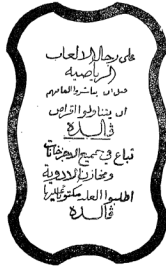 على رجال الالعاب
الرياضيه
قبل ان يباشروا العابهم
ان يتناولوا اقراص
ڤالدة
تباع في جميع الاجزخانات
ومخازن الادوية
اطلبوا العلبه مكتوب عليها
ڤالده